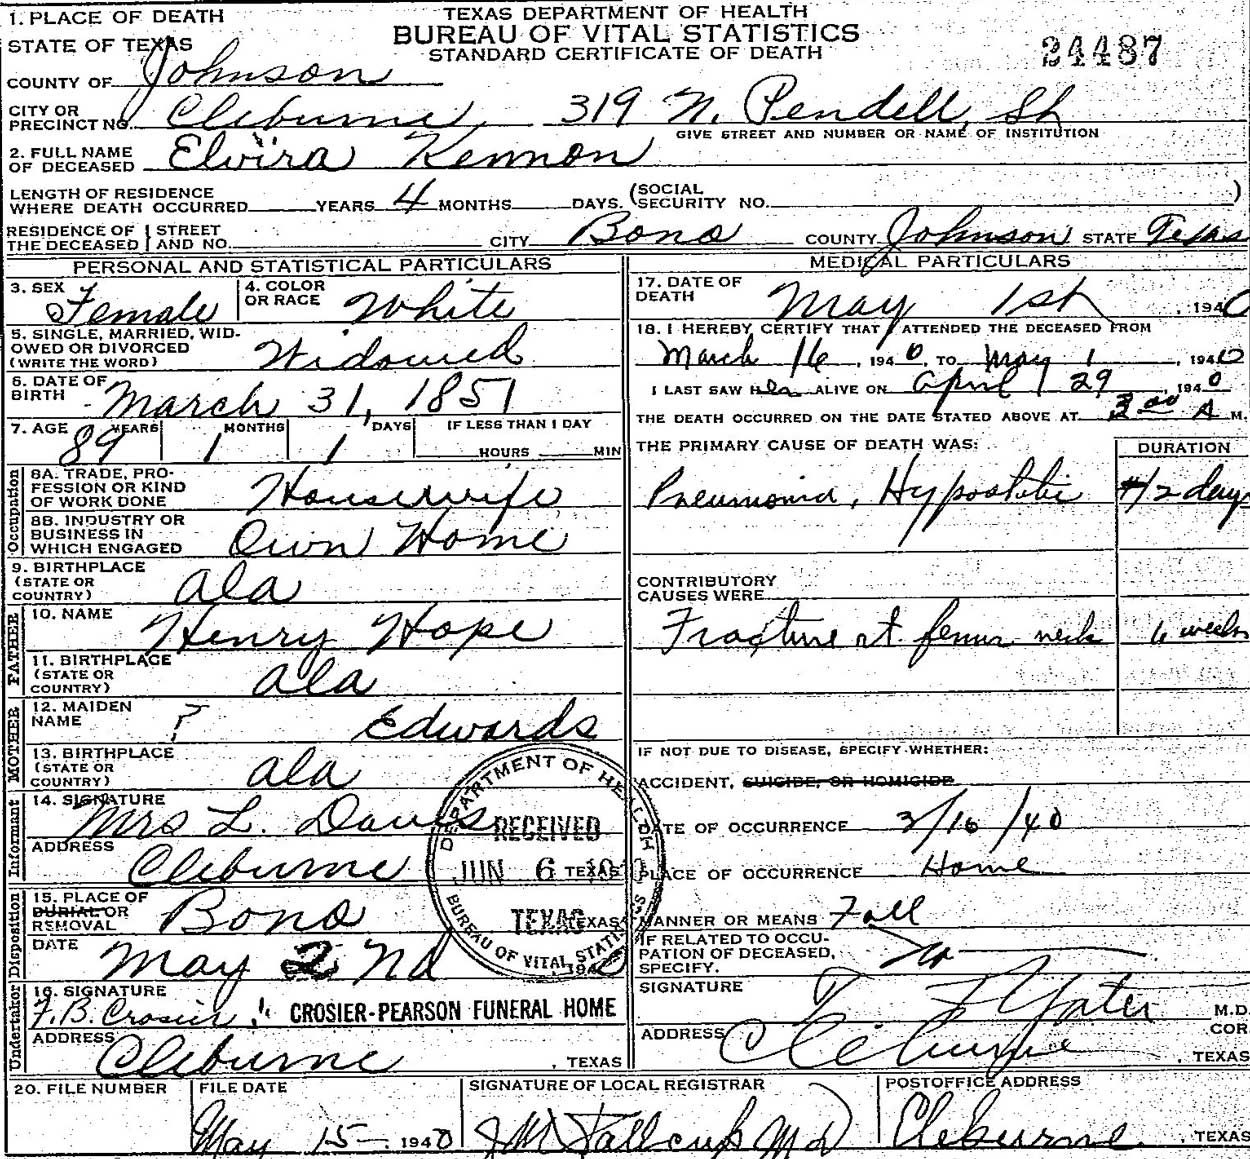 TEXAS DEPARTMENT OF HEALTH
BUREAU OF VITAL STATISTICS
STANDARD CERTIFICATE OF DEATH
24487
1. PLACE OF DEATH
STATE OF TEXAS
COUNTY OF Johnson
CITY OR PRECINCT NO. Cleburne, 319 N. Pendell, St
GIVE STREET AND NUMBER OR NAME OF INSTITUTION
2. FULL NAME OF DECEASED Elvira Kennon
LENGTH OF RESIDENCE WHERE DEATH OCCURRED YEARS 4 MONTHS DAYS. (SOCIAL SECURITY NO. )
RESIDENCE OF THE DECEASED STREET AND NO. CITY Bono COUNTY Johnson STATE Texas
PERSONAL AND STATISTICAL PARTICULARS
3. SEX Female
4. COLOR OR RACE White
5. SINGLE, MARRIED, WIDOWED OR DIVORCED (WRITE THE WORD) Widowed
6. DATE OF BIRTH March 31, 1851
7. AGE 89 YEARS 1 MONTHS 1 DAYS IF LESS THAN 1 DAY HOURS MIN
Occupation
8A. TRADE, PROFESSION OR KIND OF WORK DONE Housewife
8B. INDUSTRY OR BUSINESS IN WHICH ENGAGED Own Home
9. BIRTHPLACE (STATE OR COUNTRY) Ala
FATHER
10. NAME Henry Hope
11. BIRTHPLACE (STATE OR COUNTRY) Ala
MOTHER
12. MAIDEN NAME ? Edwards
13. BIRTHPLACE (STATE OR COUNTRY) Ala
Informant
14. SIGNATURE Mrs L. Davis
ADDRESS Cleburne
Disposition
15. PLACE OF BURIAL OR REMOVAL Bono
DATE May 2nd, 1940
Undertaker
16. SIGNATURE F. B. Crosier, CROSIER-PEARSON FUNERAL HOME
ADDRESS Cleburne, TEXAS
DEPARTMENT OF HEALTH
RECEIVED
JUN 6 1940
TEXAS
BUREAU OF VITAL STATISTICS
TEXAS
TEXAS
MEDICAL PARTICULARS
17. DATE OF DEATH May 1st, 1940
18. I HEREBY CERTIFY THAT I ATTENDED THE DECEASED FROM
March 16, 1940, TO May 1, 1940
I LAST SAW Her ALIVE ON April 29, 1940
THE DEATH OCCURRED ON THE DATE STATED ABOVE AT 3 00 A M.
THE PRIMARY CAUSE OF DEATH WAS: DURATION
Pneumonia, Hypostatic 2 days
CONTRIBUTORY CAUSES WERE
Fracture rt. femur neck 6 weeks
IF NOT DUE TO DISEASE, SPECIFY WHETHER:
ACCIDENT, SUICIDE, OR HOMICIDE
DATE OF OCCURRENCE 3/16/40
PLACE OF OCCURRENCE Home
MANNER OR MEANS Fall
IF RELATED TO OCCUPATION OF DECEASED, SPECIFY. no
SIGNATURE T. F. Yater M.D. COR.
ADDRESS Cleburne, TEXAS
20. FILE NUMBER
FILE DATE May 15 1940
SIGNATURE OF LOCAL REGISTRAR J M Stallcup MD
POSTOFFICE ADDRESS Cleburne, TEXAS